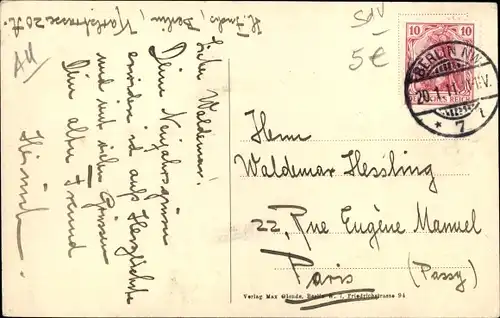 H. Fuchs, Berlin, Karlstrasse 20 A.
Lieber Waldemar!
Deine Neujahrsgrüsse
erwidere ich aufs Herzlichste
und mit vielen Grüssen
Dein alter Freund
Heinrich.
AU
SdV
5€
10 10
BERLIN NW
20.1.11. V.
* 7 i
Herrn
Waldemar Hessling
22, Rue Eugène Manuel
Paris (Passy)
Verlag Max Glende, Berlin W. i, Friedrichstrasse 94